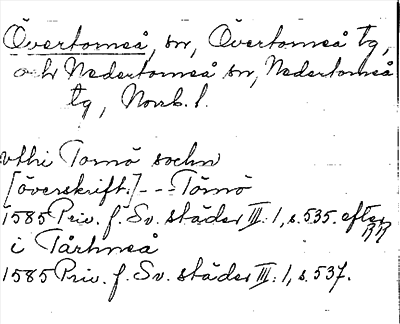 Övertorneå, sn, Övertorneå tg,
och Nedertorneå sn, Nedertorneå
tg, Norrb. l.
vthi Tornö sochn
[överskrift:] --- Tornö
1585 Priv. f. Sv. städer III: 1, s. 535. efter RR
i Tårhneå
1585 Priv. f. Sv. städer III: 1, s. 537.